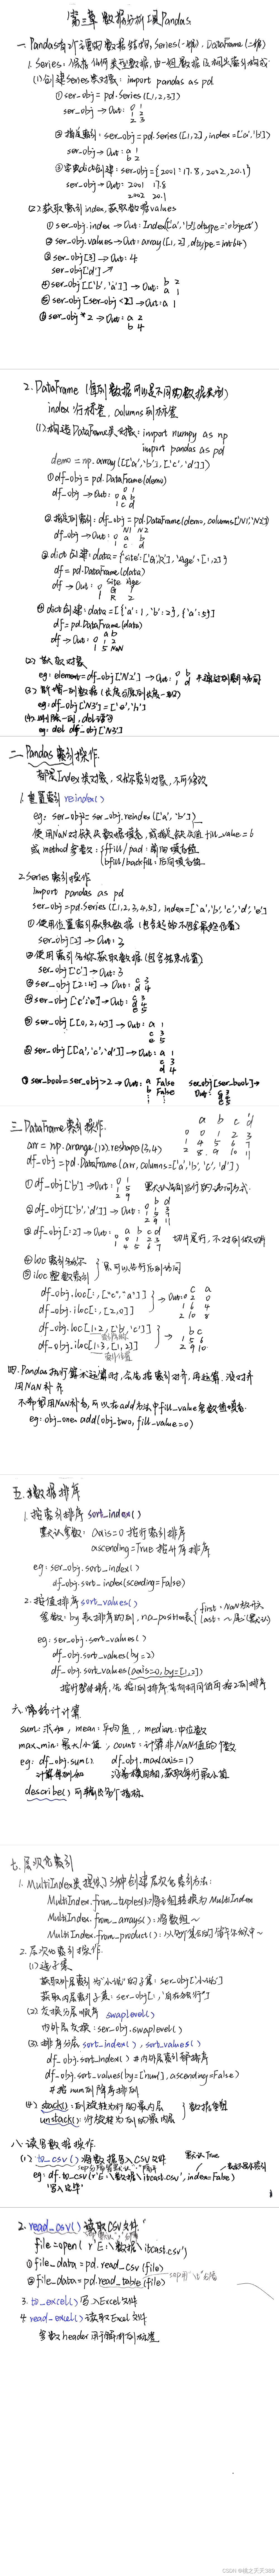 第三章 数据分析工具Pandas
一. Pandas有2个主要的数据结构, Series(一维). DataFrame(二维)
1. Series: 保存任何类型数据, 由一组数据与相关索引构成
(1)创建Series类对象: import pandas as pd
①ser_obj = pd.Series([1,2,3])
ser_obj → Out: 0 1
1 2
2 3
②指定索引: ser_obj = pd.Series([1,2], index=['a','b'])
ser_obj → Out: a 1
b 2
③字典dict创建: ser_obj={2001:17.8, 2002:20.1}
ser_obj → Out: 2001 17.8
2002 20.1
(2)获取索引index, 获取数据values
①ser_obj.index → Out: Index(['a','b'], dtype='object')
②ser_obj.values → Out: array([1,2], dtype=int64)
③ser_obj[3] → Out: 4
ser_obj['d'] ↗
④ser_obj[['b','a']] → Out: b 2
a 1
⑤ser_obj[ser_obj<2] → Out: a 1
⑥ser_obj * 2 → Out: a 2
b 4
2. DataFrame (每列数据可以是不同的数据类型)
index 行标签, columns列标签
(1)构造DataFrame类对象: import numpy as np
import pandas as pd
demo = np.array([['a','b'],['c','d']])
①df_obj = pd.DataFrame(demo)
df_obj → Out: 0 1
0 a b
1 c d
②指定列索引: df_obj = pd.DataFrame(demo, columns=['N1','N2'])
df_obj → Out: N1 N2
0 a b
1 c d
③dict创建: data={'Site':['G','R'], 'Age':[1,2]}
df = pd.DataFrame(data)
df → Out: Site Age
0 G 1
1 R 2
④dict创建: data=[{'a':1, 'b':2}, {'a':5}]
df = pd.DataFrame(data)
df → Out: a b
0 1 2
1 5 NaN
(2) 获取对象
eg: element=df_obj['N2'] → Out: 0 b
1 d
(3) 新增一列数据
eg: df_obj['N3']=['e','h']
(4) 删除一列, del语句
eg: del df_obj['N3']
二. Pandas 索引操作.
都是Index类对象, 又称索引对象, 不可修改.
1. 重置索引 reindex()
eg: ser_obj2= ser_obj.reindex(['a','b'])
使用NaN对缺失数据填充, 或指定缺失值 fill_value=6
或 method 参数: ffill/pad: 前向填充值
bfill/backfill: 后向填充值
2. Series 索引操作
import pandas as pd
ser_obj=pd.Series([1,2,3,4,5], index=['a','b','c','d','e']
①使用位置索引获取数据 (包含起始不包含最终位置)
ser_obj[2] → Out: 3
②使用索引名称获取数据 (包含结束位置)
ser_obj['c'] → Out: 3
③ser_obj[2:4] → Out: c 3
d 4
④ser_obj['c':'e'] → Out: c 3
d 4
e 5
⑤ser_obj[[0,2,4]] → Out: a 1
c 3
e 5
⑥ser_obj[['a','c','d']] → Out: a 1
c 3
d 4
⑦ser_bool=ser_obj>2 → Out: a False
b False
ser_obj[ser_bool] → Out: c 3
d 4
e 5
三. DataFrame 索引操作.
arr = np.arange(12).reshape(3,4)
df_obj = pd.DataFrame(arr, columns=['a','b','c','d'])
a b c d
0 0 1 2 3
1 4 5 6 7
2 8 9 10 11
①df_obj['b'] → Out: 0 1
1 5
2 9
②df_obj[['b','d']] → Out: b d
0 1 3
1 5 7
2 9 11
③df_obj[:2] → Out: a b c d
0 0 1 2 3
1 4 5 6 7
切片是行, 不对列做切片
④loc 索引名称
⑤iloc 整数索引
df_obj.loc[:,["c","a"]]
df_obj.iloc[:,[2,0]]
→ Out: c a
0 2 0
1 6 4
2 10 8
df_obj.loc[1:2,['b','c']]
df_obj.iloc[1:3,[1,2]]
→ b c
1 5 6
2 9 10
四. Pandas 执行算术运算时, 会先按索引对齐, 再运算. 没对齐
用NaN补齐
不希望用NaN补齐, 可以在add方法中fill_value参数值填充.
eg: obj_one.add(obj_two, fill_value=0)
五. 数据排序
1. 按索引排序 sort_index()
默认参数: axis=0 按行索引排序
ascending=True 按升序排序
eg: ser_obj.sort_index()
df_obj.sort_index(ascending=False)
2. 按值排序 sort_values()
参数: by 表排序的列, na_position表 first, NaN放开头
last: ~尾(默认)
eg: ser_obj.sort_values()
df_obj.sort_values(by=2)
df_obj.sort_values(axis=0, by=[1,2])
六. 统计计算
sum: 求和, mean: 平均值, median: 中位数
max, min: 最大/小值, count: 计算非NaN值的个数
eg: df_obj.sum() df_obj.max(axis=1)
describe() 可输出多个指标.
七. 层次化索引
1. MultiIndex类提供了3种创建层次化索引方法:
MultiIndex.from_tuples(): 将元组转换为MultiIndex
MultiIndex.from_arrays(): 将数组~
MultiIndex.from_product(): 从多个集合的笛卡尔积中~
2. 层次化索引操作
(1)选子集
获取外层索引为'小说'的子集: ser_obj['小说']
获取内层索引子集: ser_obj[:,'自在独行']
(2) 交换分层顺序 swaplevel()
内外层交换: ser_obj.swaplevel()
(3) 排序分层 sort_index(), sort_values()
df_obj.sort_index() #内外层索引都排序
df_obj.sort_values(by=['num'], ascending=False)
#按num列降序排列
(4) stack(): 列旋转为行的最内层
unstack(): 行旋转为列的最内层
数据重塑
八. 读写数据操作
(1) to_csv() 将数据写入CSV文件
默认True
eg: df.to_csv(r'E:\数据\itcast.csv', index=False)
'写入完毕'
2. read_csv() 读取CSV文件
file=open(r'E:\数据\itcast.csv')
①file_data = pd.read_csv(file)
②file_data= pd.read_table(file)
3. to_excel() 写入Excel文件
4. read_excel() 读取Excel文件
参数header用于解析列标签
CSDN @桃之夭夭785